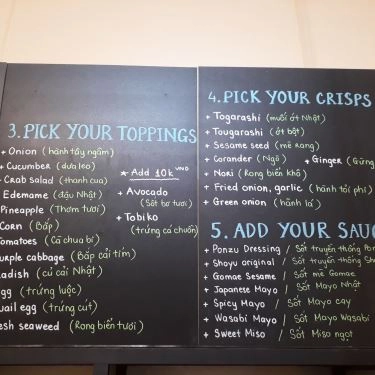 3. PICK YOUR TOPPINGS
+ Onion (hành tây ngâm)
+ Cucumber (dưa leo)
+ Crab salad (thanh cua)
Edemame (đậu Nhật)
Pineapple (Thơm tươi)
Corn (Bắp)
Tomatoes (Cà chua bi)
urple cabbage (Bắp cải tím)
adish (củ cải Nhật)
gg (trứng luộc)
uail egg (trứng cút)
esh seaweed (Rong biển tươi)
* Add 10k VND
+ Avocado
(Sốt bơ tươi)
+ Tobiko
(trứng cá chuồn)
4. PICK YOUR CRISPS
+ Togarashi (muối ớt Nhật)
+ Tougarashi (ớt bột)
+ Sesame seed (mè rang)
+ Corander (Ngò) + Ginger (Gừng
+ Nori (Rong biển khô)
+ Fried onion, garlic (hành tỏi phi)
+ Green onion (hành lá)
5. ADD YOUR SAUC
+ Ponzu Dressing / Sốt truyền thống Pon
+ Shoyu original / Sốt truyền thống Sh
+ Gomae Sesame / Sốt mè Gomae
+ Japanese Mayo / Sốt Mayo Nhật
+ Spicy Mayo / Sốt Mayo cay
+ Wasabi Mayo / Sốt Mayo Wasabi
+ Sweet Miso / Sốt Miso ngọt